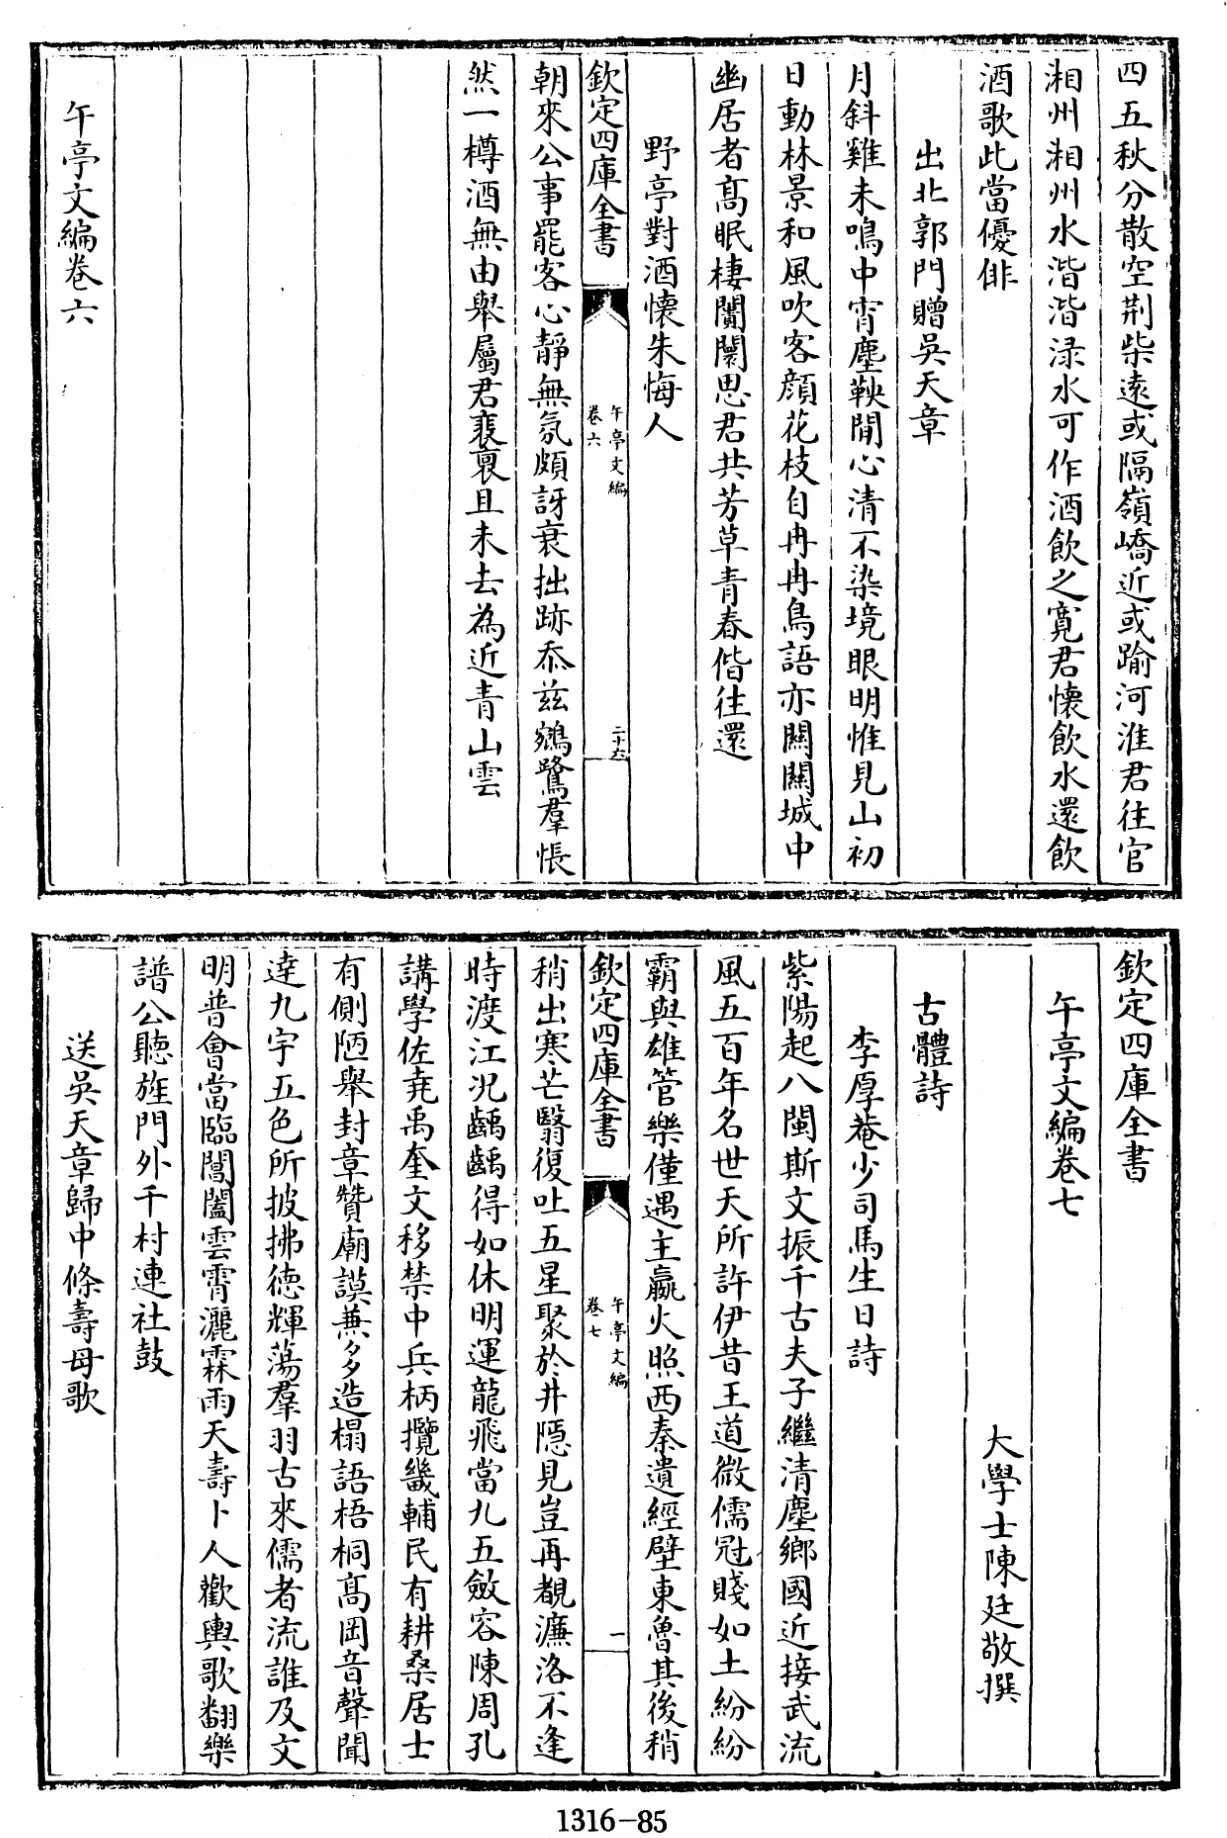 四五秋分散空荆柴遠或隔嶺嶠近或踰河淮君往官
湘州湘州水湝湝渌水可作酒飲之寛君懐飲水還飲
酒歌此當優俳
出北郭門贈吳天章
月斜雞未鳴中宵塵鞅閒心清不染境眼明惟見山初
日動林景和風吹客顔花枝自冉冉鳥語亦闗闗城中
幽居者髙眠棲闤闠思君共芳草青春偕往還
野亭對酒懐朱悔人
欽定四庫全書
午亭文編
卷六
二十六
朝來公事罷客心靜無氛頗訝衰拙跡忝兹鵷鷺羣悵
然一樽酒無由舉屬君裵裒且未去為近青山雲
午亭文編卷六
欽定四庫全書
午亭文編卷七
大學士陳廷敬撰
古體詩
李厚菴少司馬生日詩
紫陽起八閩斯文振千古夫子繼清塵鄉國近接武流
風五百年名世天所許伊昔王道微儒冠賤如土紛紛
霸與雄管樂僅遇主嬴火照西秦遺經壁東魯其後稍
欽定四庫全書
午亭文編
卷七
一
稍出寒芒翳復吐五星聚於井隠見豈再覩濂洛不逢
時渡江况齲齲得如休明運龍飛當九五斂容陳周孔
講學佐堯禹奎文移禁中兵柄攬畿輔民有耕桑居士
有側陋舉封章贊廟謨兼多造榻語梧桐髙岡音聲聞
逹九宇五色所披拂徳輝蕩羣羽古來儒者流誰及文
明普會當臨閶闔雲霄灑霖雨天壽卜人歡輿歌翻樂
譜公聽旌門外千村連社鼓
送吳天章歸中條壽母歌
1316-85